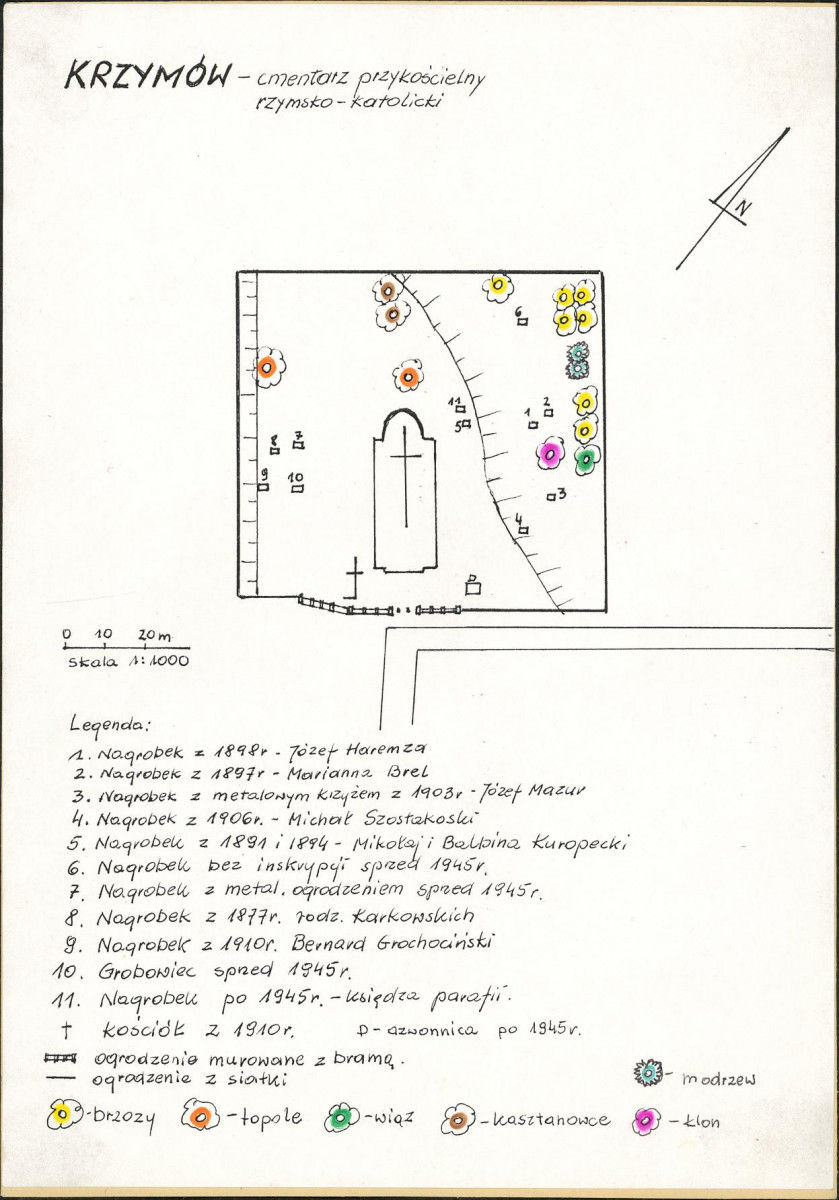 KRZYMÓW - cmentarz przykościelny
rzymsko-katolicki
N
6
11
2
1
5
8
7
9
10
3
4
D
0 10 20m
Skala 1:1000
Legenda:
1. Nagrobek z 1898r - Józef Haremza
2. Nagrobek z 1897r - Marianna Brel
3. Nagrobek z metalowym krzyżem z 1903r - Józef Mazur
4. Nagrobek z 1906r. - Michał Szostakoski
5. Nagrobek z 1891 i 1894 - Mikołaj i Balbina Kuropecki
6. Nagrobek bez inskrypcji sprzed 1945r.
7. Nagrobek z metal. ogrodzeniem sprzed 1945r.
8. Nagrobek z 1877r. rodz. Karkowskich
9. Nagrobek z 1910r. Bernard Grochociński
10. Grobowiec sprzed 1945r.
11. Nagrobek po 1945r. - księdza parafii.
† kościół z 1910r. D - dzwonnica po 1945r.
ogrodzenie murowane z bramą.
ogrodzenie z siatki
- modrzew
- brzozy - topole - wiąz - kasztanowce - klon